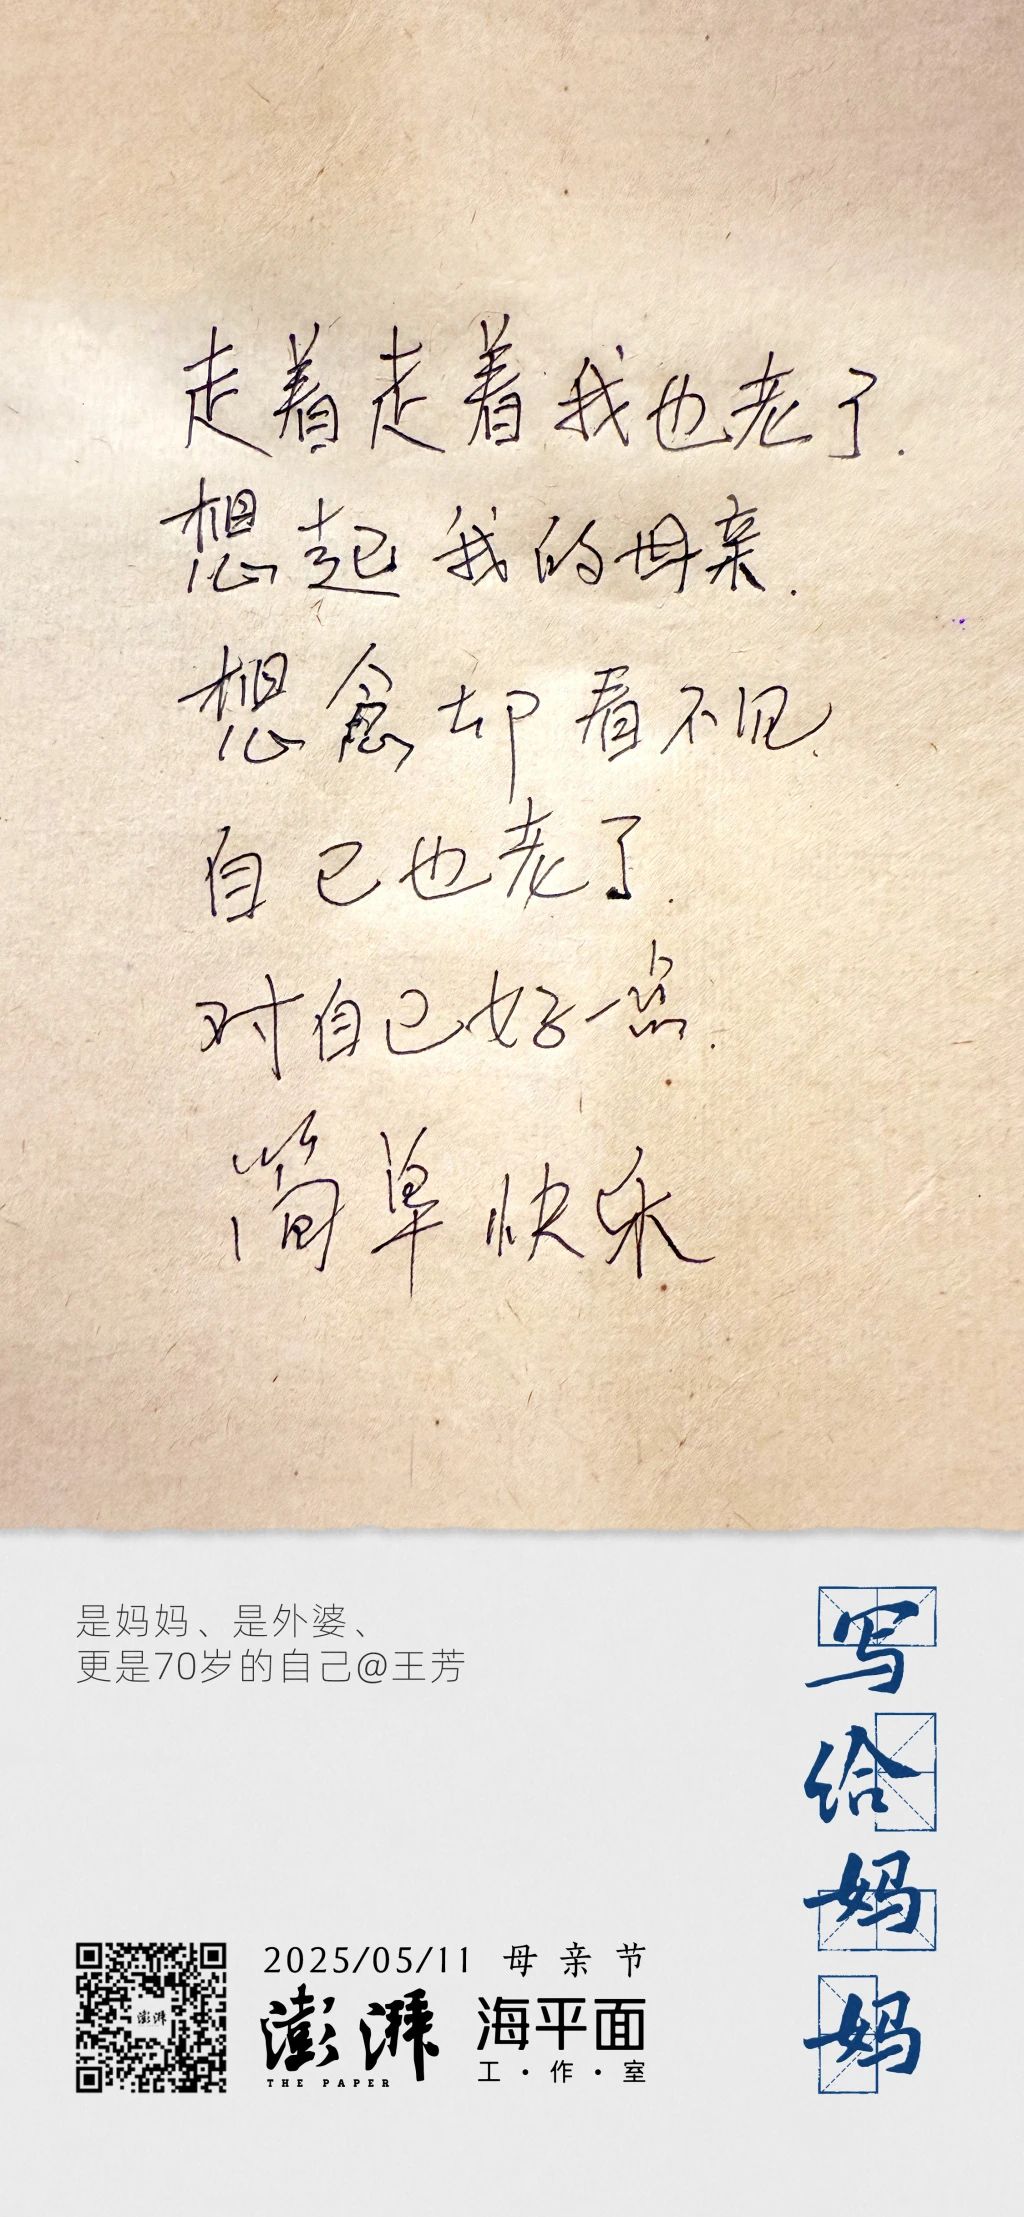 走着走着我也老了.
想起我的母亲.
想念却看不见.
自己也老了.
对自己好一点.
简单快乐
是妈妈、是外婆、
更是70岁的自己@王芳
写给妈妈
澎湃
2025/05/11 母亲节
澎湃 海平面
THE PAPER 工·作·室